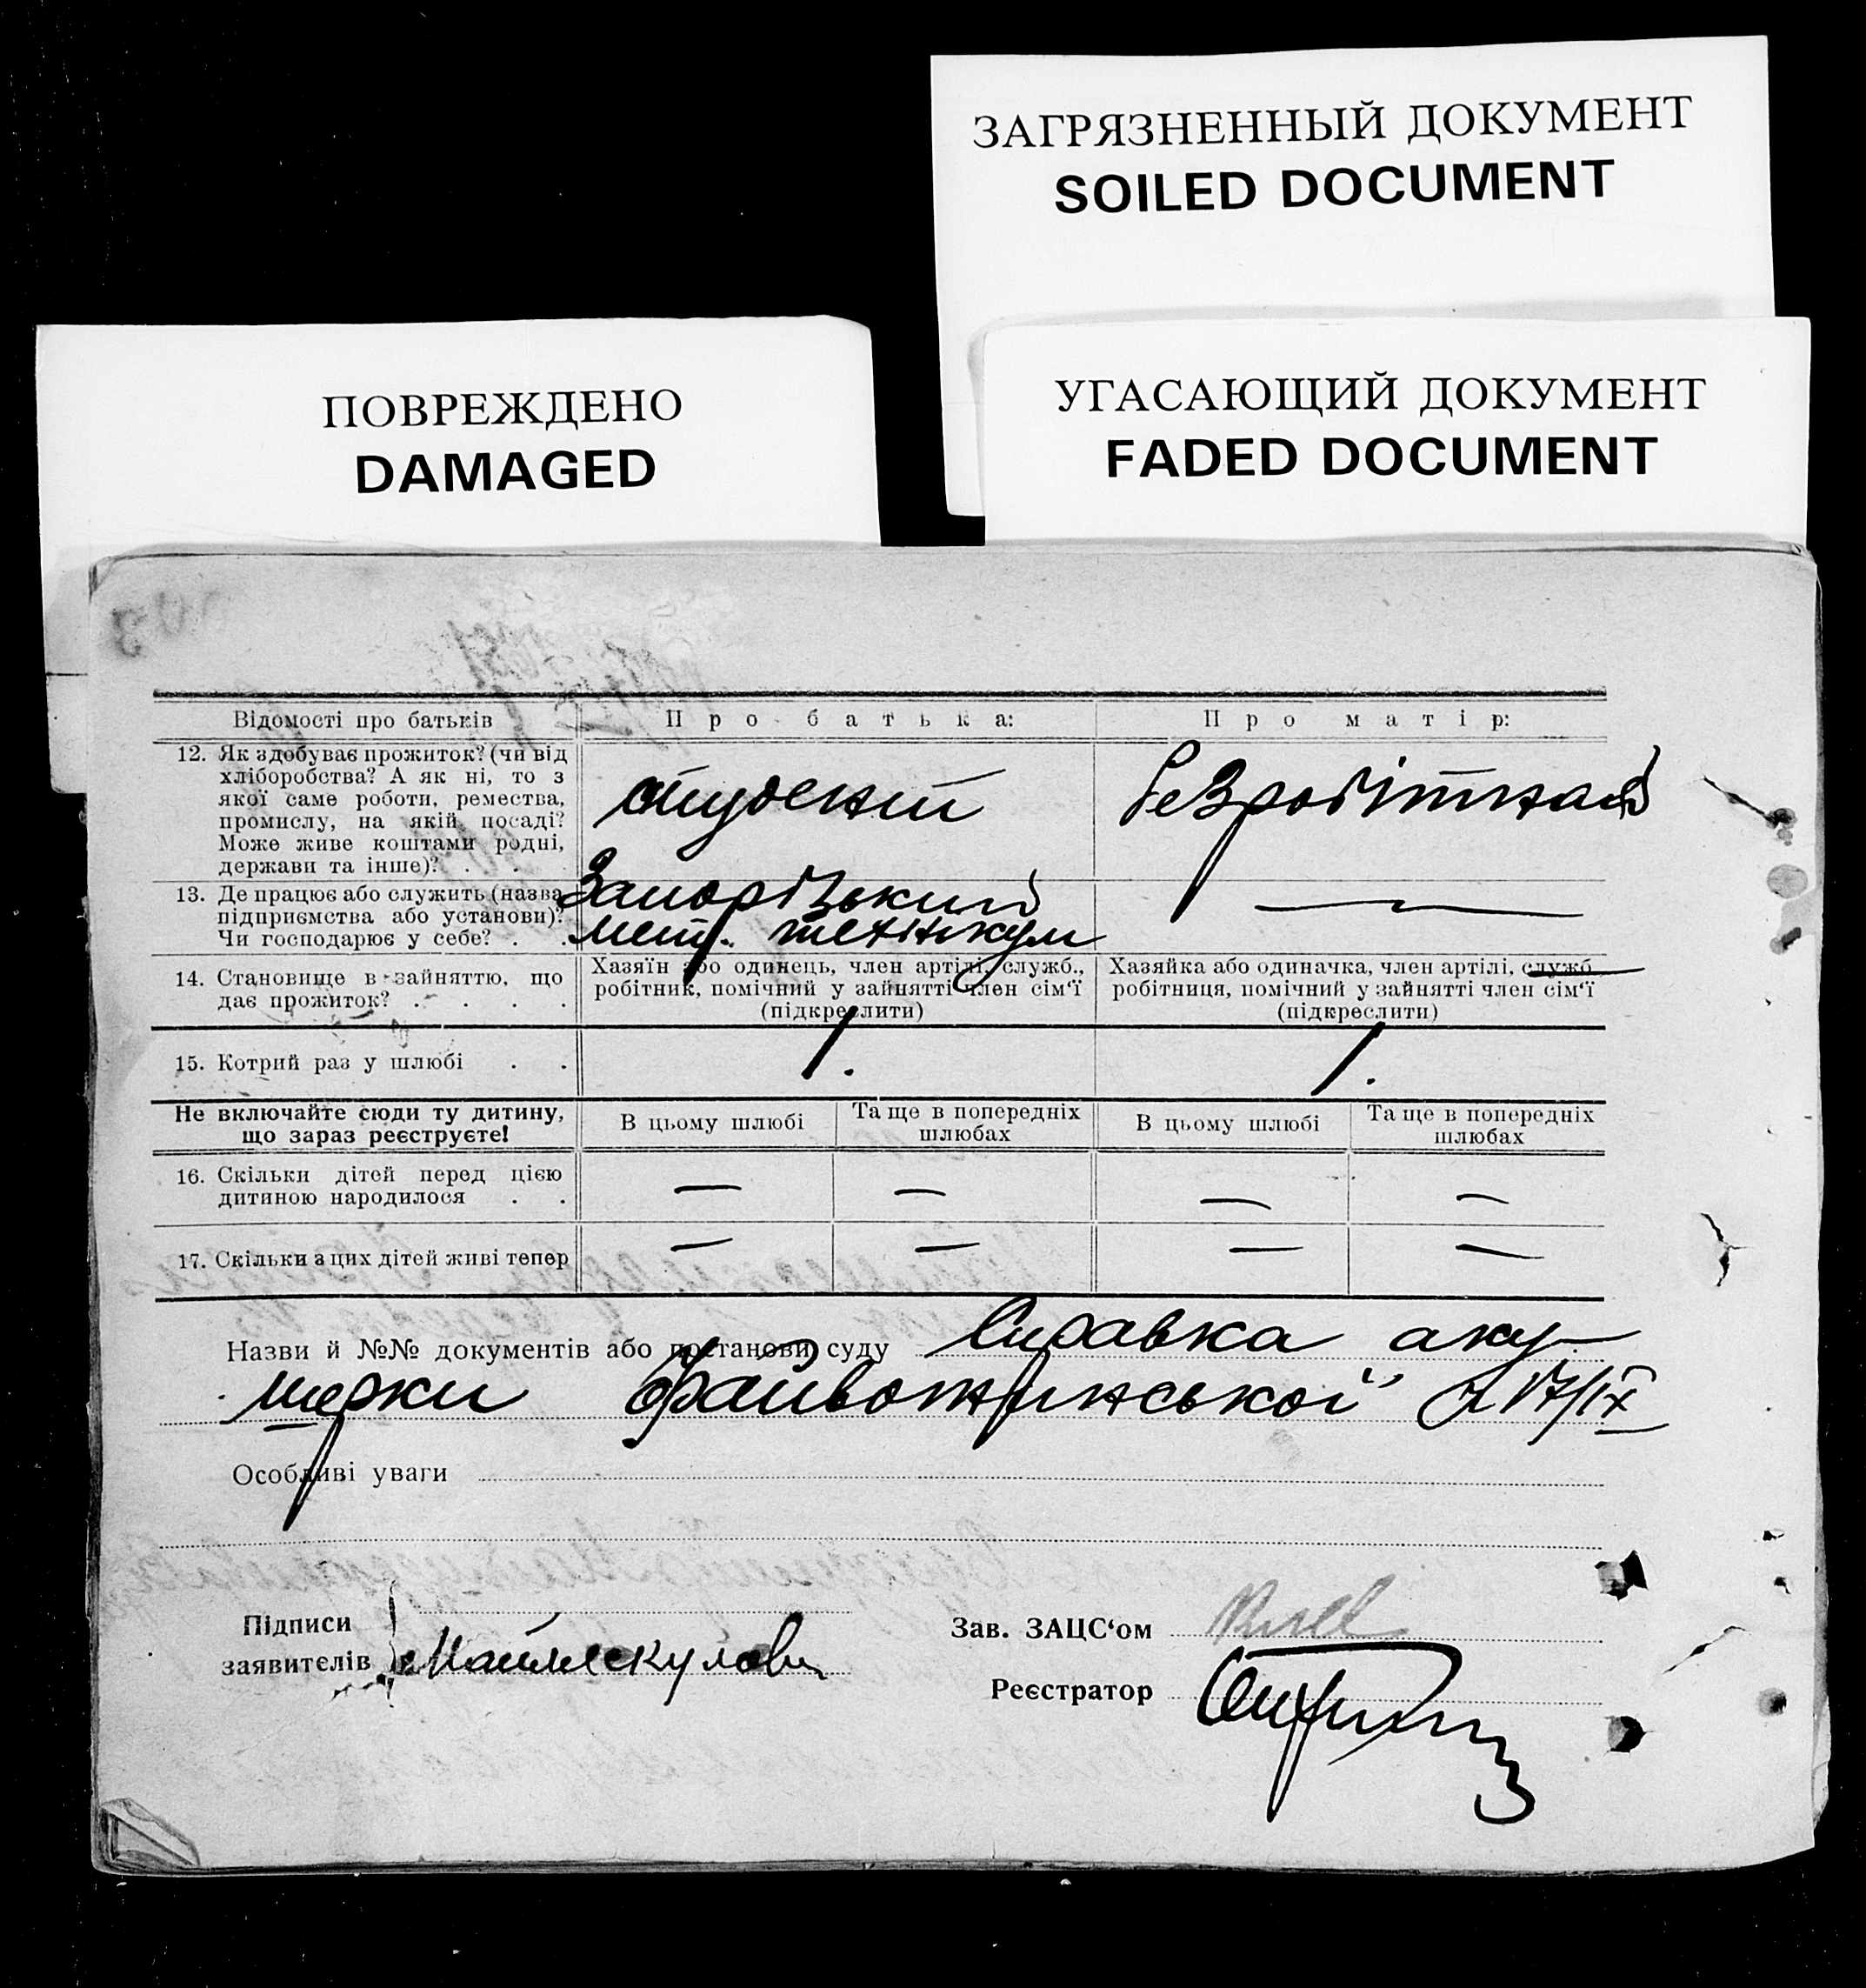 ЗАГРЯЗНЕННЫЙ ДОКУМЕНТ
SOILED DOCUMENT
ПОВРЕЖДЕНО
DAMAGED
УГАСАЮЩИЙ ДОКУМЕНТ
FADED DOCUMENT
Відомості про батьків
Про батька:
Про матір:
12. Як здобуває прожиток? (чи від
хліборобства? А як ні, то з
якої саме роботи, ремества,
промислу, на якій посаді?
Може живе коштами родні,
держави та інше)? . . .
студент
безробітна
13. Де працює або служить (назва
підприємства або установи)?
Чи господарює у себе? . .
Запорізький
мет. технікум
—
14. Становище в зайняттю, що
дає прожиток? . . . .
Хазяїн або одинець, член артілі, служб.,
робітник, помічний у зайнятті член сім'ї
(підкреслити)
Хазяйка або одиначка, член артілі, служб.
робітниця, помічний у зайнятті член сім'ї
(підкреслити)
15. Котрий раз у шлюбі . .
1.
1.
Не включайте сюди ту дитину,
що зараз реєструєте!
В цьому шлюбі
Та ще в попередніх
шлюбах
В цьому шлюбі
Та ще в попередніх
шлюбах
16. Скільки дітей перед цією
дитиною народилося . .
— — — —
17. Скільки з цих дітей живі тепер
— — — —
Назви й №№ документів або постанови суду Справка аку-
шерки 17/IX
Особливі уваги
Підписи
заявителів
Зав. ЗАЦС'ом
Реєстратор